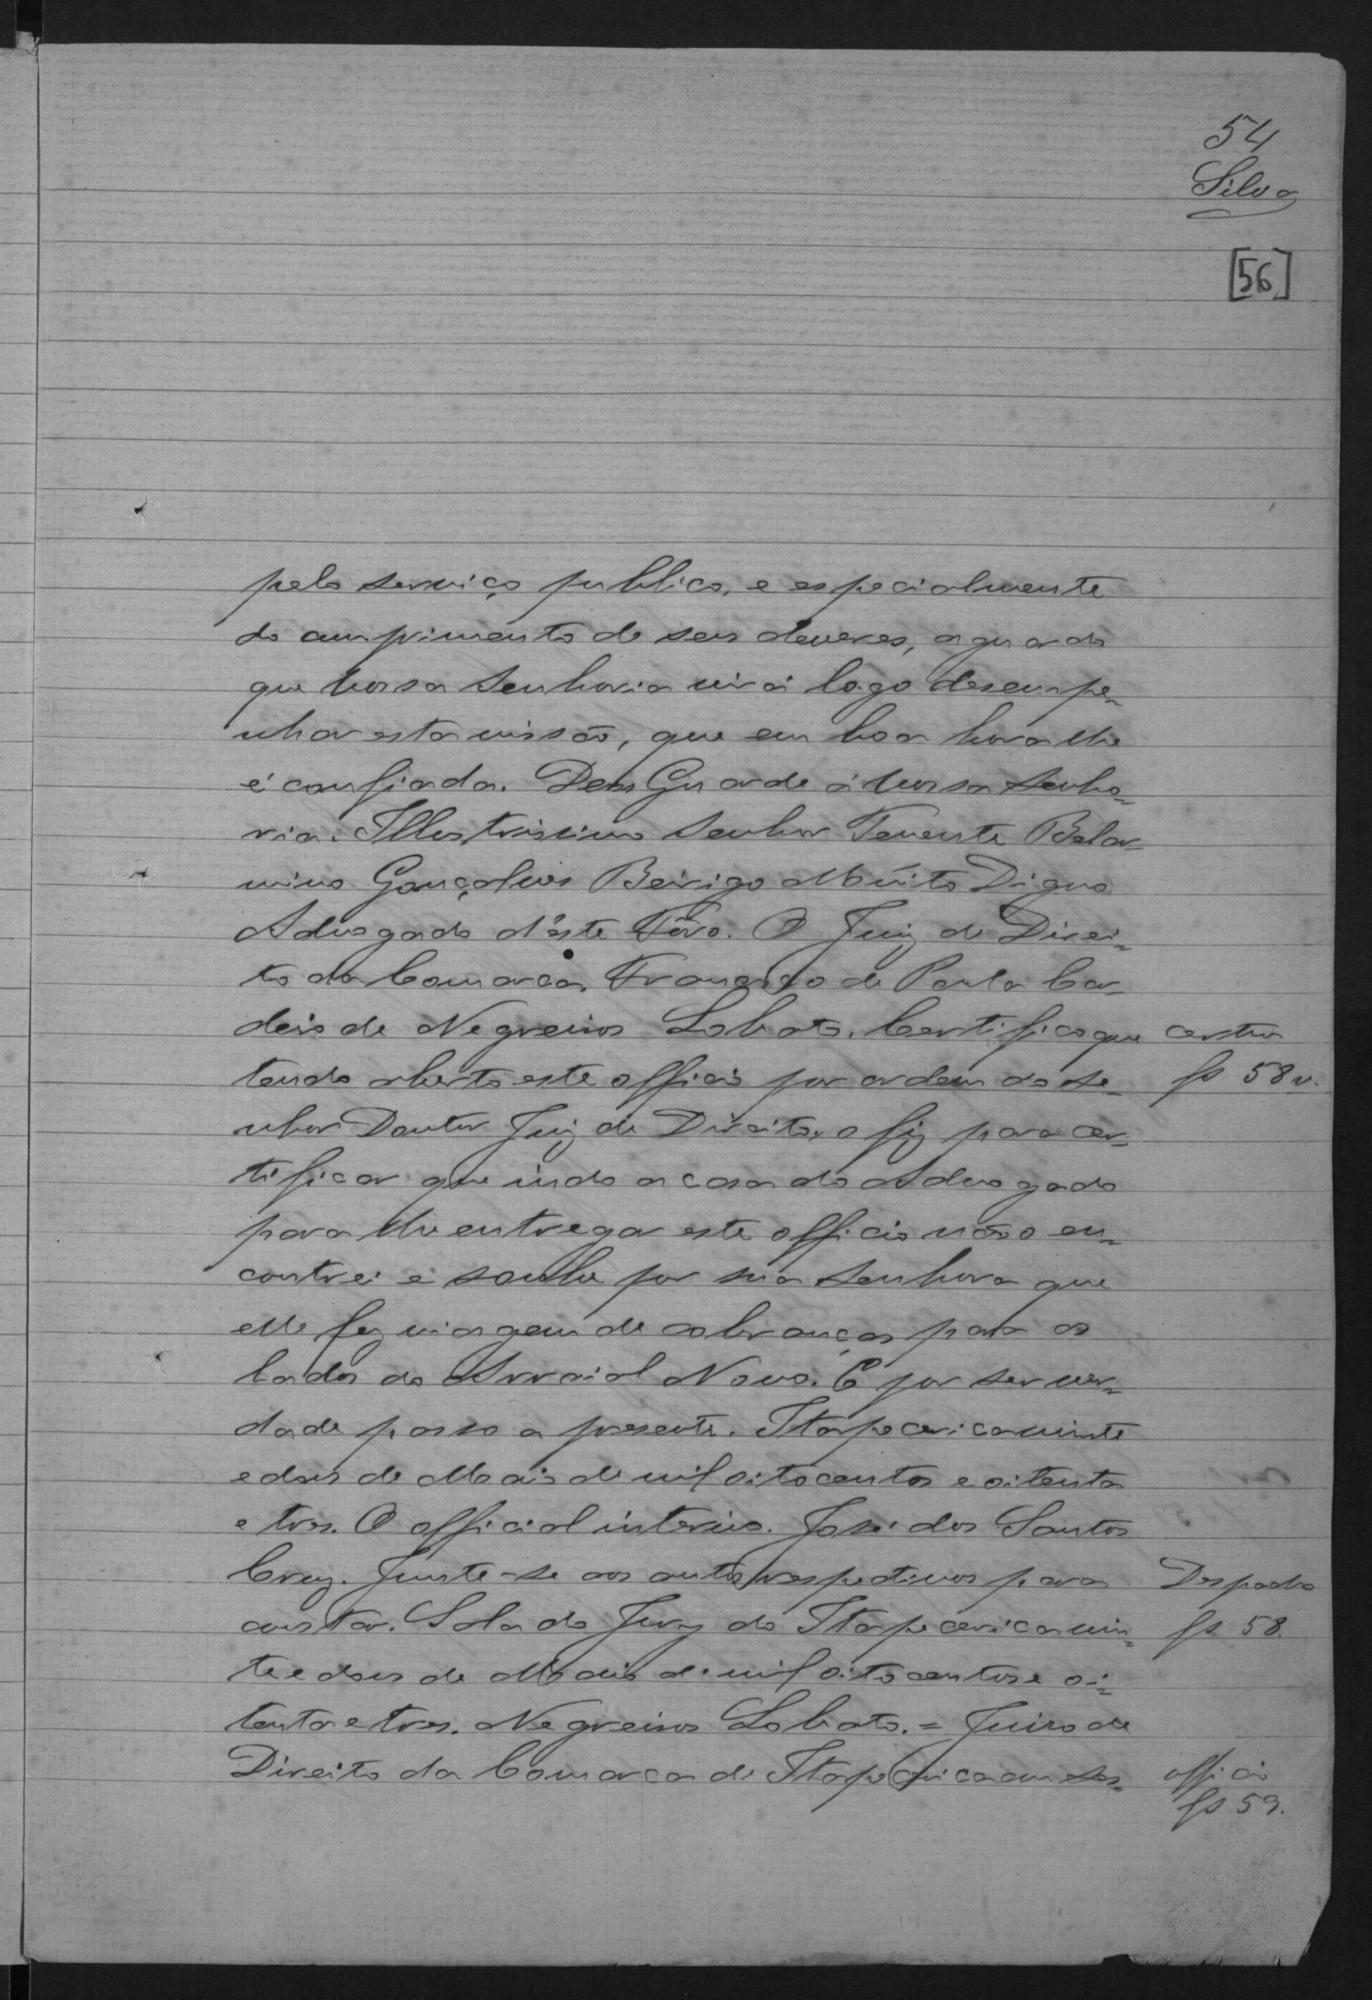 54
Silva
[56]
pelo serviço publico, e especialmente
do cumprimento de seus deveres, aguardo
que Vossa Senhoria virá logo desempe-
nhar esta missão, que em boa hora lhe
é confiada. Deus Guarde á Vossa Senho-
ria. Illustrissimo Senhor Tenente Belar-
mino Gonçalves Beirigo Muito Digno
Advogado d'este Fôro. O Juiz de Direi-
to da Comarca, Francisco de Paula Cor-
deiro de Negreiros Lobato. Certifico que
certam
tendo aberto este officio por ordem do Se-
fs 58 v.
nhor Doutor Juiz de Direito, o fiz para cer-
tificar que indo a casa do Advogado
para lhe entregar este officio não o en-
contrei e soube por sua Senhora que
elle fez viagem de cobranças para os
lados do Arraial Novo. E por ser ver-
dade passo a presente. Itapecerica vinte
e dous de Maio de mil oitocentos e oitenta
e tres. O official interino. José dos Santos
Cruz. Junte-se aos autos respectivos para
Despacho
constar. Sala do Jury do Itapecerica vin-
fs 58.
te e dous de Maio de mil oitocentos e oi-
tenta e tres. Negreiros Lobato. = Juizo de
Direito da Comarca de Itapecerica em ses-
officio
fs 59.